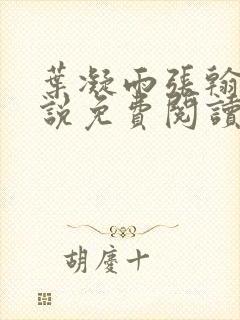 葉凝雨張翰
說免費閱讀
胡慶十